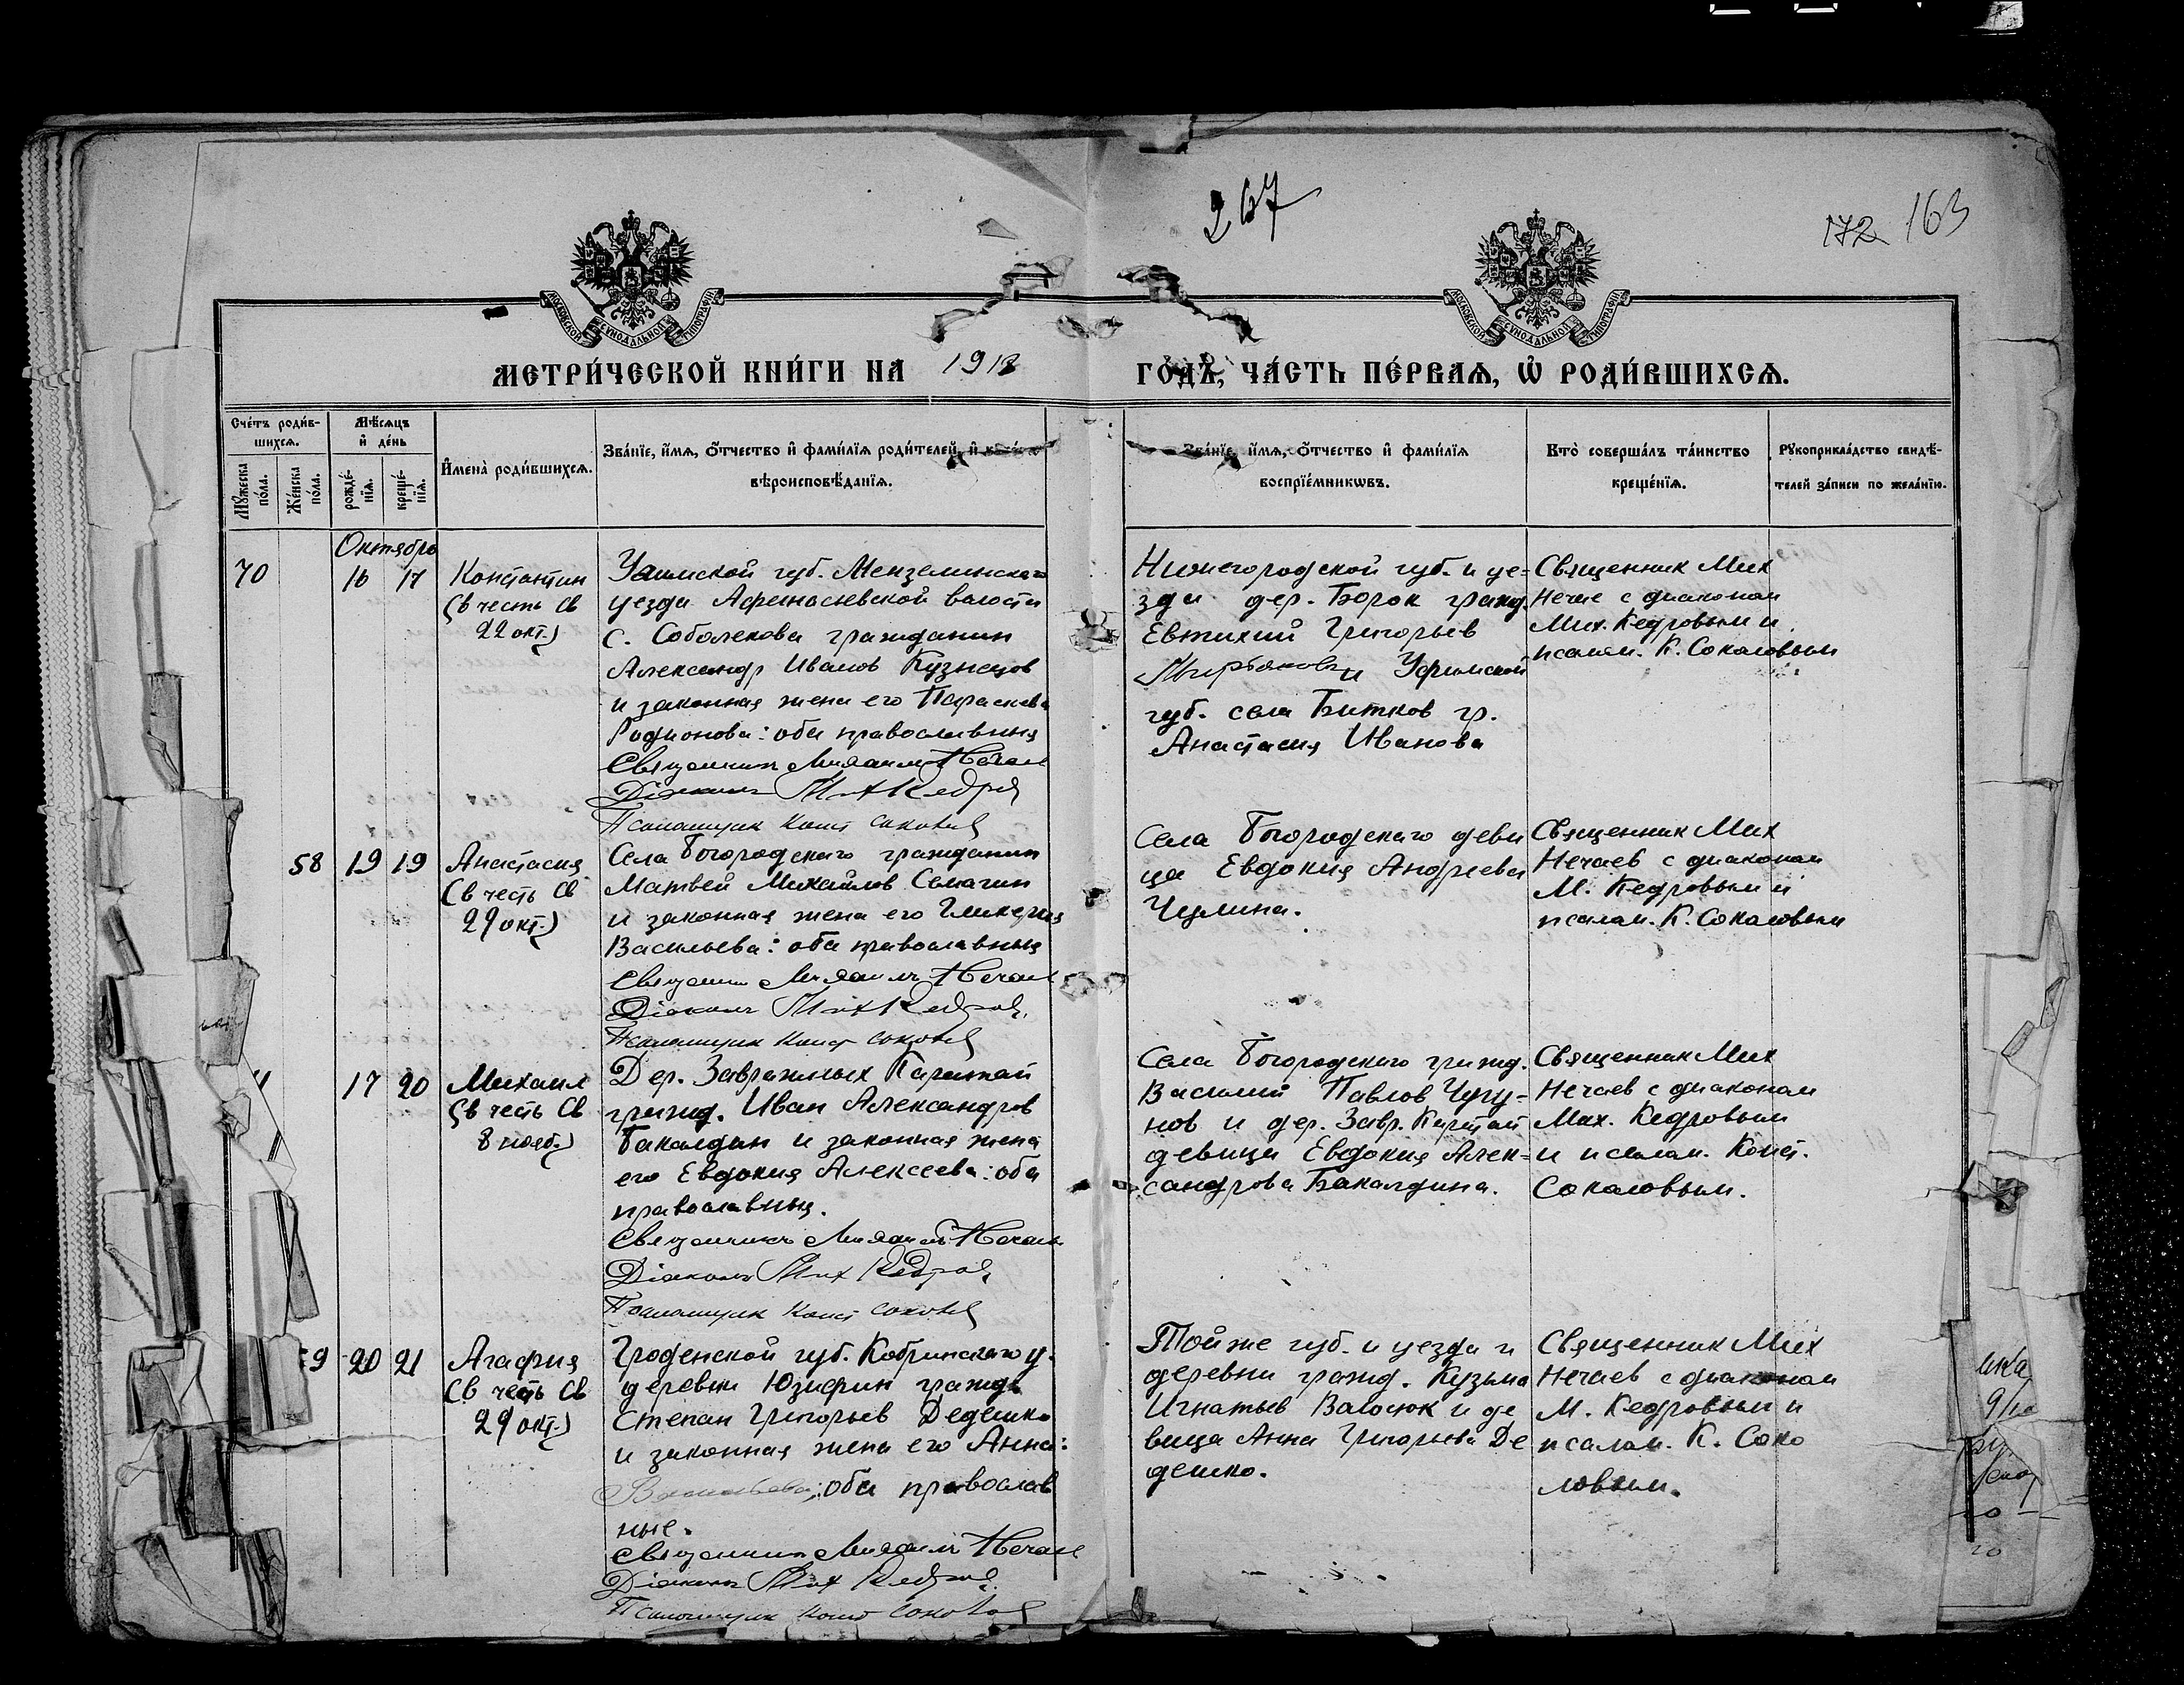 267
172 163
МОСКОВСКОЙ СѴНОДАЛЬНОЙ ТИПОГРАФІИ
МОСКОВСКОЙ СѴНОДАЛЬНОЙ ТИПОГРАФІИ
МЕТРИ́ЧЕСКОЙ КНИ́ГИ НА 1918 ГО́ДЪ, ЧА́СТЬ ПЕ́РВАѦ, Ѡ҆ РОДИ́ВШИХСѦ.
Сче́тъ роди́в-
шихсѧ.
Мꙋ́жеска
по́ла.
Же́нска
по́ла.
Мѣ́сѧцъ
и҆ де́нь
рожде́-
нїѧ.
креще́-
нїѧ.
И҆мена̀ роди́вшихсѧ.
Зва́нїе, и҆́мѧ, ѻ҆́тчество и҆ фами́лїѧ роди́телей, и҆
вѣроисповѣ́данїѧ.
Зва́нїе, и҆́мѧ, ѻ҆́тчество и҆ фами́лїѧ
воспрїе́мникѡвъ.
Кто̀ соверша́лъ та́инство
креще́нїѧ.
Рꙋкоприкла́дство свидѣ́-
телей за́писи по жела́нїю.
Октября
70 16 17
Константин
(в честь св
22 окт.)
Уфимской губ. Мензелинского
уезда Афанасьевской волости
с. Соболекова гражданин
Александр Иванов Кузнецов
и законная жена его Параскева
Родионова: оба православныя
Священник Михаил Нечаев
Діаконъ Мих Кедров
Псаломщик Конст Соколов
Нижегородской губ. и уе-
зда дер. Борок гражд.
Евтихий Григорьев
и Уфимской
губ. села Битков гр.
Анастасия Иванова
Священник Мих
Нечае с диаконом
Мих. Кедровым и
псалом. К. Соколовым
58 19 19
Анастасия
(в честь св
29 окт.)
Села Богородскаго гражданин
Матвей Михайлов Семагин
и законная жена его Гликерия
Васильева: оба православныя
Священник Михаилъ Нечаев
Діаконъ Мих Кедров.
Псаломщик Конст Соколов
Села Богородскаго деви
ца Евдокия Андреева
Чулина.
Священник Мих
Нечаев с диаконом
М. Кедровым и
псалом. К. Соколовым
17 20
Михаил
(в честь св
8 нояб.)
Дер. Завражных Каратай
гражд. Иван Александров
Бакалдин и законная жена
его Евдокия Алексеева: оба
православныя.
Священникъ Михаилъ Нечаев
Діаконъ Мих Кедров
Псаломщик Конст Соколов
Села Богородскаго гражд.
Василий Павлов Чугу-
нов и дер. Завр. Каратай
девица Евдокия Алек-
сандрова Бакалдина.
Священник Мих
Нечаев с диаконом
Мих. Кедровым
и псалом. Конст.
Соколовым.
9 20 21
Агафия
(в честь св
29 окт.)
Гроденской губ. Кобринскаго у.
деревни Юзифин гражд
Степан Григорьев Дедешко
и законная жена его Анна:
Васильева; оба православ
ные.
Священник Михаилъ Нечаев
Діаконъ Мих Кедров
Псаломщик Конст Соколов
Той же губ. и уезда и
деревни гражд. Кузьма
Игнатьев Васюк и де
вица Анна Григорьева Де
дешко.
Священник Мих
Нечаев с диаконом
М. Кедровым и
псалом. К. Соко
ловым.